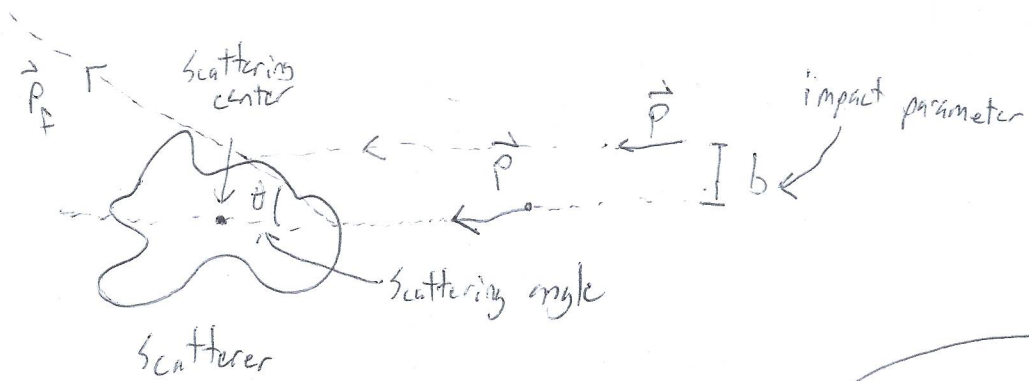 Scattering
center
P⃗f
P⃗
impact parameter
P⃗
b
θ
Scattering angle
Scatterer